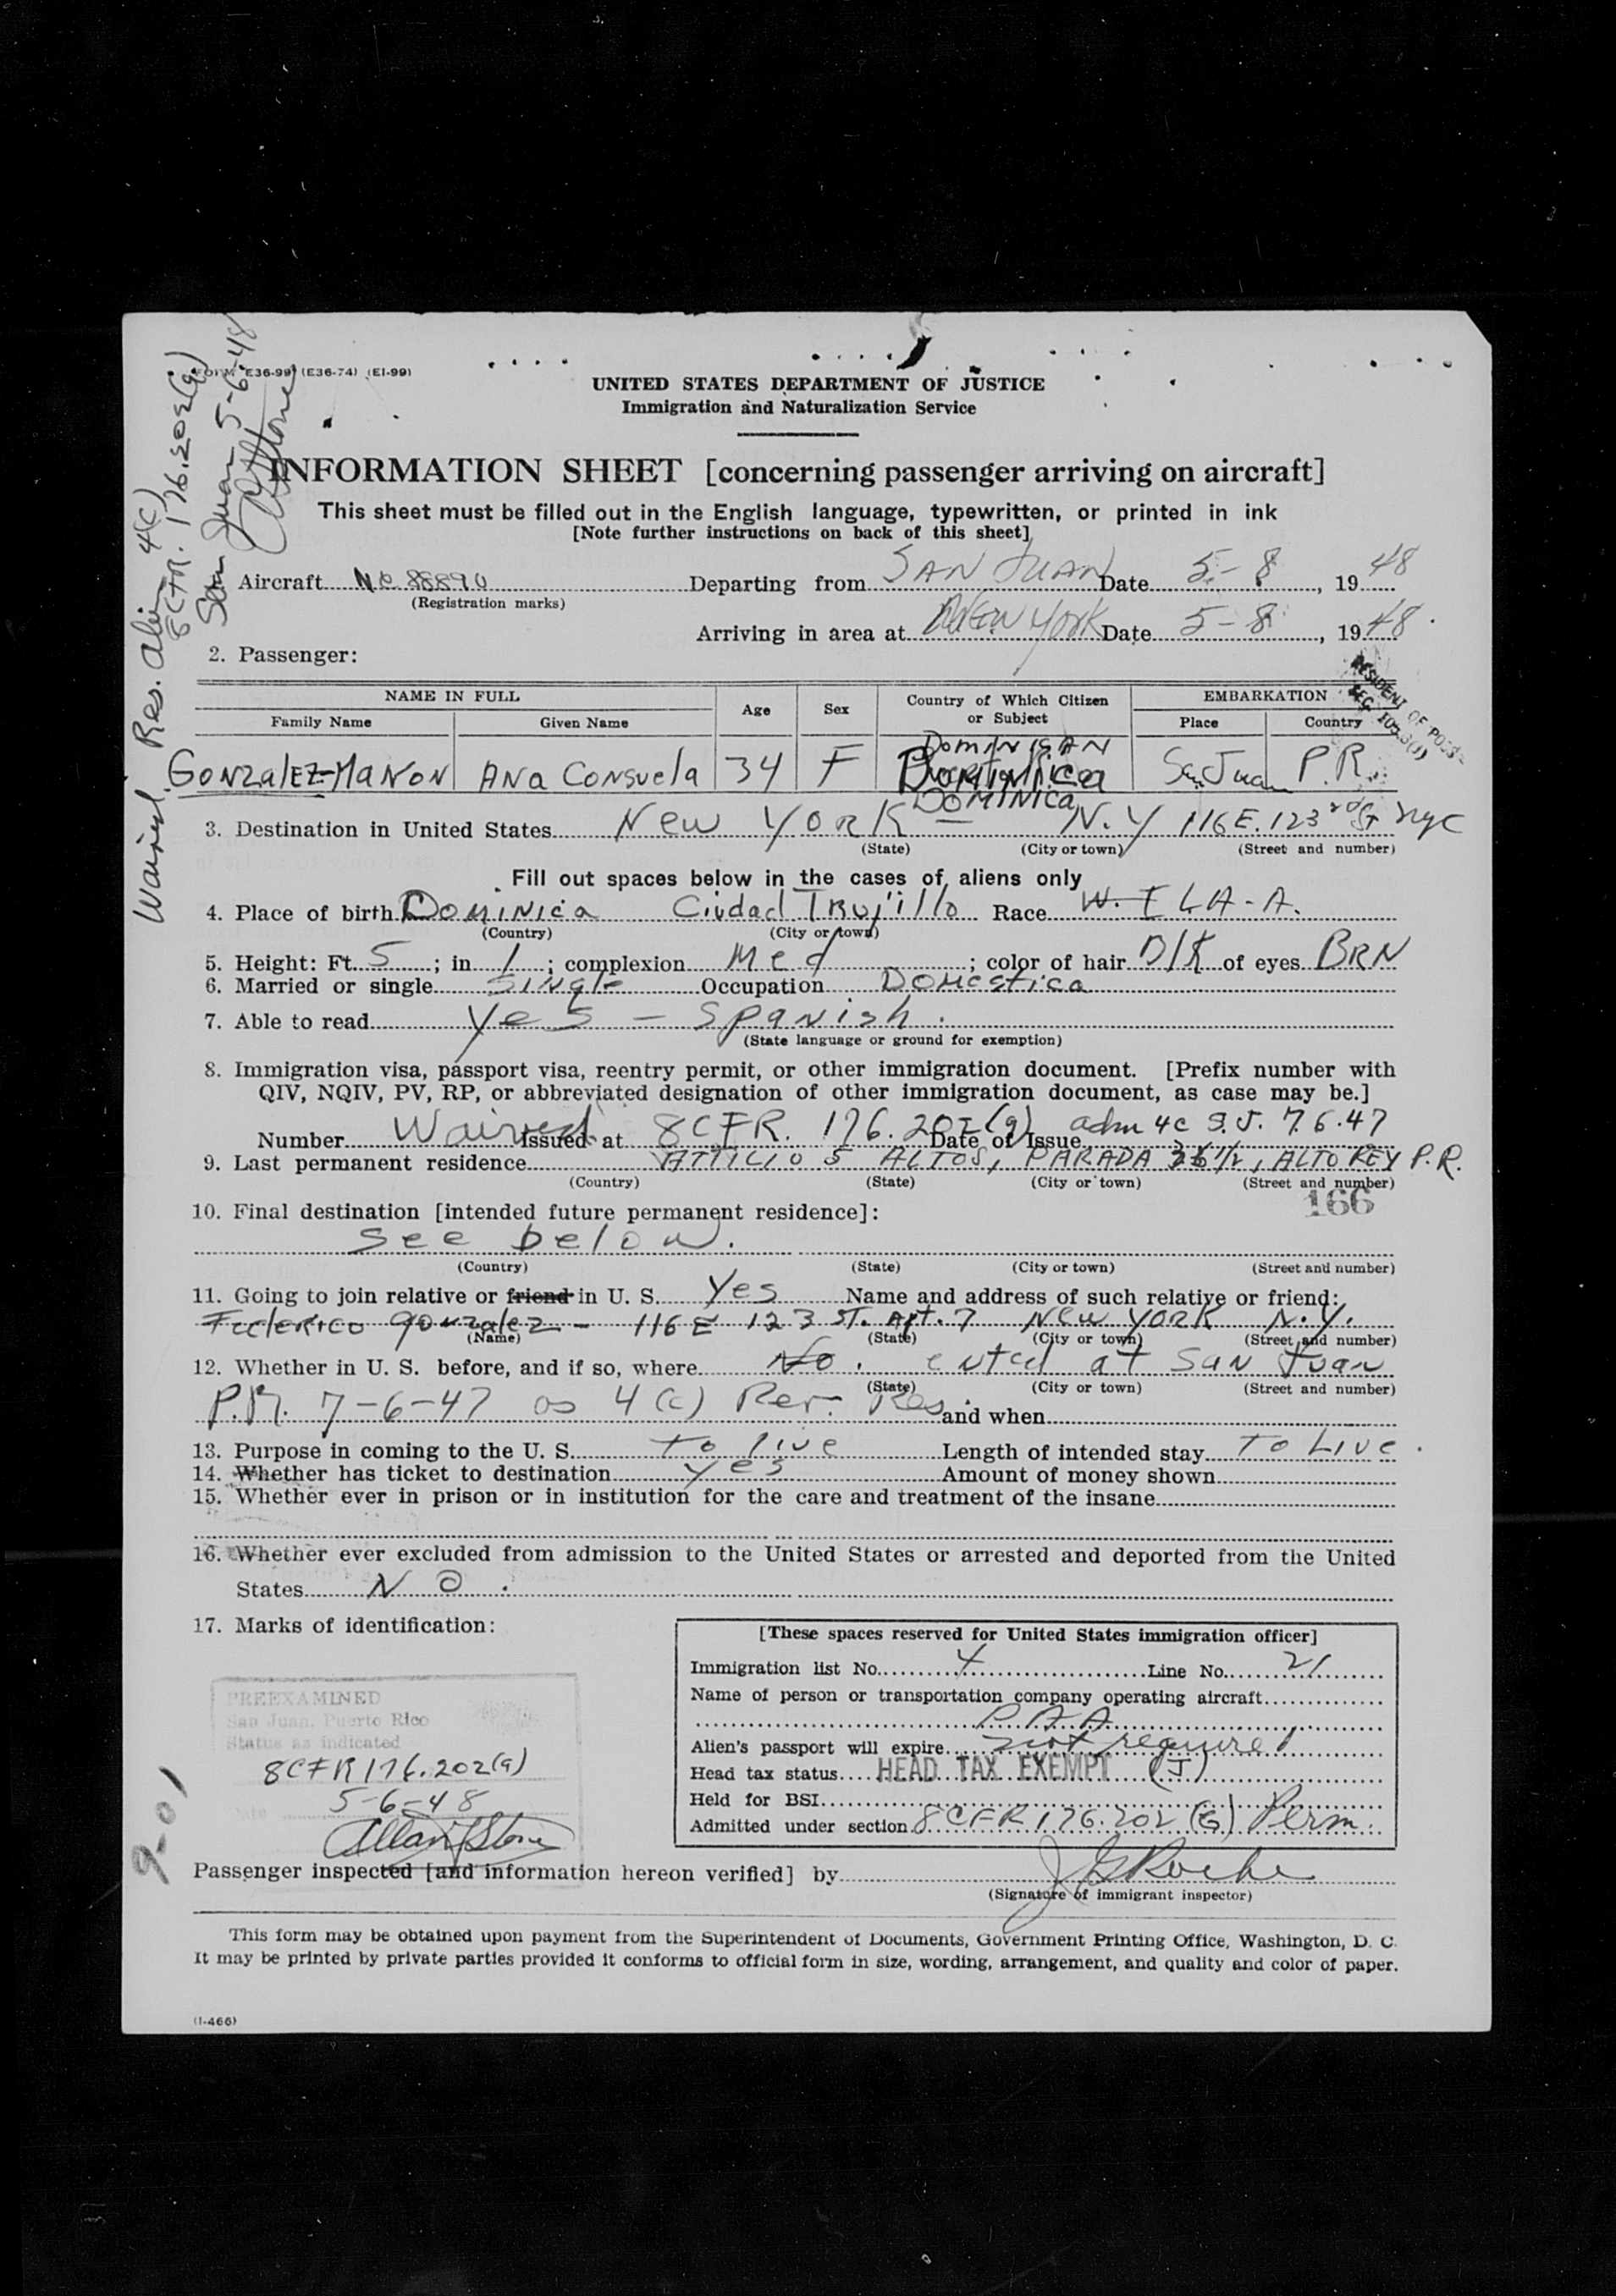 FORM E36-99 (E36-74) (E1-99)
UNITED STATES DEPARTMENT OF JUSTICE
Immigration and Naturalization Service
INFORMATION SHEET [concerning passenger arriving on aircraft]
This sheet must be filled out in the English language, typewritten, or printed in ink
[Note further instructions on back of this sheet]
Waived. Res. alien 4(c)
8 CFR. 176.202(g)
San Juan 5-6-48
Aircraft NC 88890 Departing from SAN JUAN Date 5-8, 1948
(Registration marks)
Arriving in area at NEW YORK Date 5-8, 1948.
2. Passenger:
RESIDENT OF POSS
NAME IN FULL Age Sex Country of Which Citizen or Subject EMBARKATION
Family Name Given Name Place Country
DOMINICAN
GONZalEZ-MaNON ANa CoNsuela 34 F San Juan P.R.
DOMINICa
3. Destination in United States New YORK N.Y 116 E. 123 St nyc
(State) (City or town) (Street and number)
Fill out spaces below in the cases of aliens only
4. Place of birth DoMiNica Ciudad TRujillo Race W. I LA-A.
(Country) (City or town)
5. Height: Ft. 5; in 1; complexion Med; color of hair D/K of eyes BRN
6. Married or single SiNgle Occupation DoMestica
7. Able to read Yes - Spanish.
(State language or ground for exemption)
8. Immigration visa, passport visa, reentry permit, or other immigration document. [Prefix number with
QIV, NQIV, PV, RP, or abbreviated designation of other immigration document, as case may be.]
Number Waived Issued at 8CFR. 176.202(g) Date of Issue adm 4c S.J. 7.6.47
9. Last permanent residence ATTILIO 5 ALTOS, PARADA 36 1/2, ALTO REY P.R.
(Country) (State) (City or town) (Street and number)
166
10. Final destination [intended future permanent residence]:
See below.
(Country) (State) (City or town) (Street and number)
11. Going to join relative or friend in U. S. Yes Name and address of such relative or friend:
Federico gonzalez - 116 E 123 ST. Apt. 7 New YORK N.Y.
(Name) (State) (City or town) (Street and number)
12. Whether in U. S. before, and if so, where No. ented at San Juan
(State) (City or town) (Street and number)
P.R. 7-6-47 as 4(c) Res. and when
13. Purpose in coming to the U. S. to live Length of intended stay To Live.
14. Whether has ticket to destination yes Amount of money shown
15. Whether ever in prison or in institution for the care and treatment of the insane
16. Whether ever excluded from admission to the United States or arrested and deported from the United
States NO.
17. Marks of identification:
[These spaces reserved for United States immigration officer]
Immigration list No. 4 Line No. 21
Name of person or transportation company operating aircraft
P.A.A
Alien's passport will expire not required
Head tax status HEAD TAX EXEMPT (J)
Held for BSI
Admitted under section 8 CFR 176.202 (G) Perm.
PREEXAMINED
San Juan, Puerto Rico
Status as indicated
8CFR 176.202(g)
Date 5-6-48
Allan J Stone
9-01
Passenger inspected [and information hereon verified] by J G Roche
(Signature of immigrant inspector)
This form may be obtained upon payment from the Superintendent of Documents, Government Printing Office, Washington, D. C.
It may be printed by private parties provided it conforms to official form in size, wording, arrangement, and quality and color of paper.
(I-466)